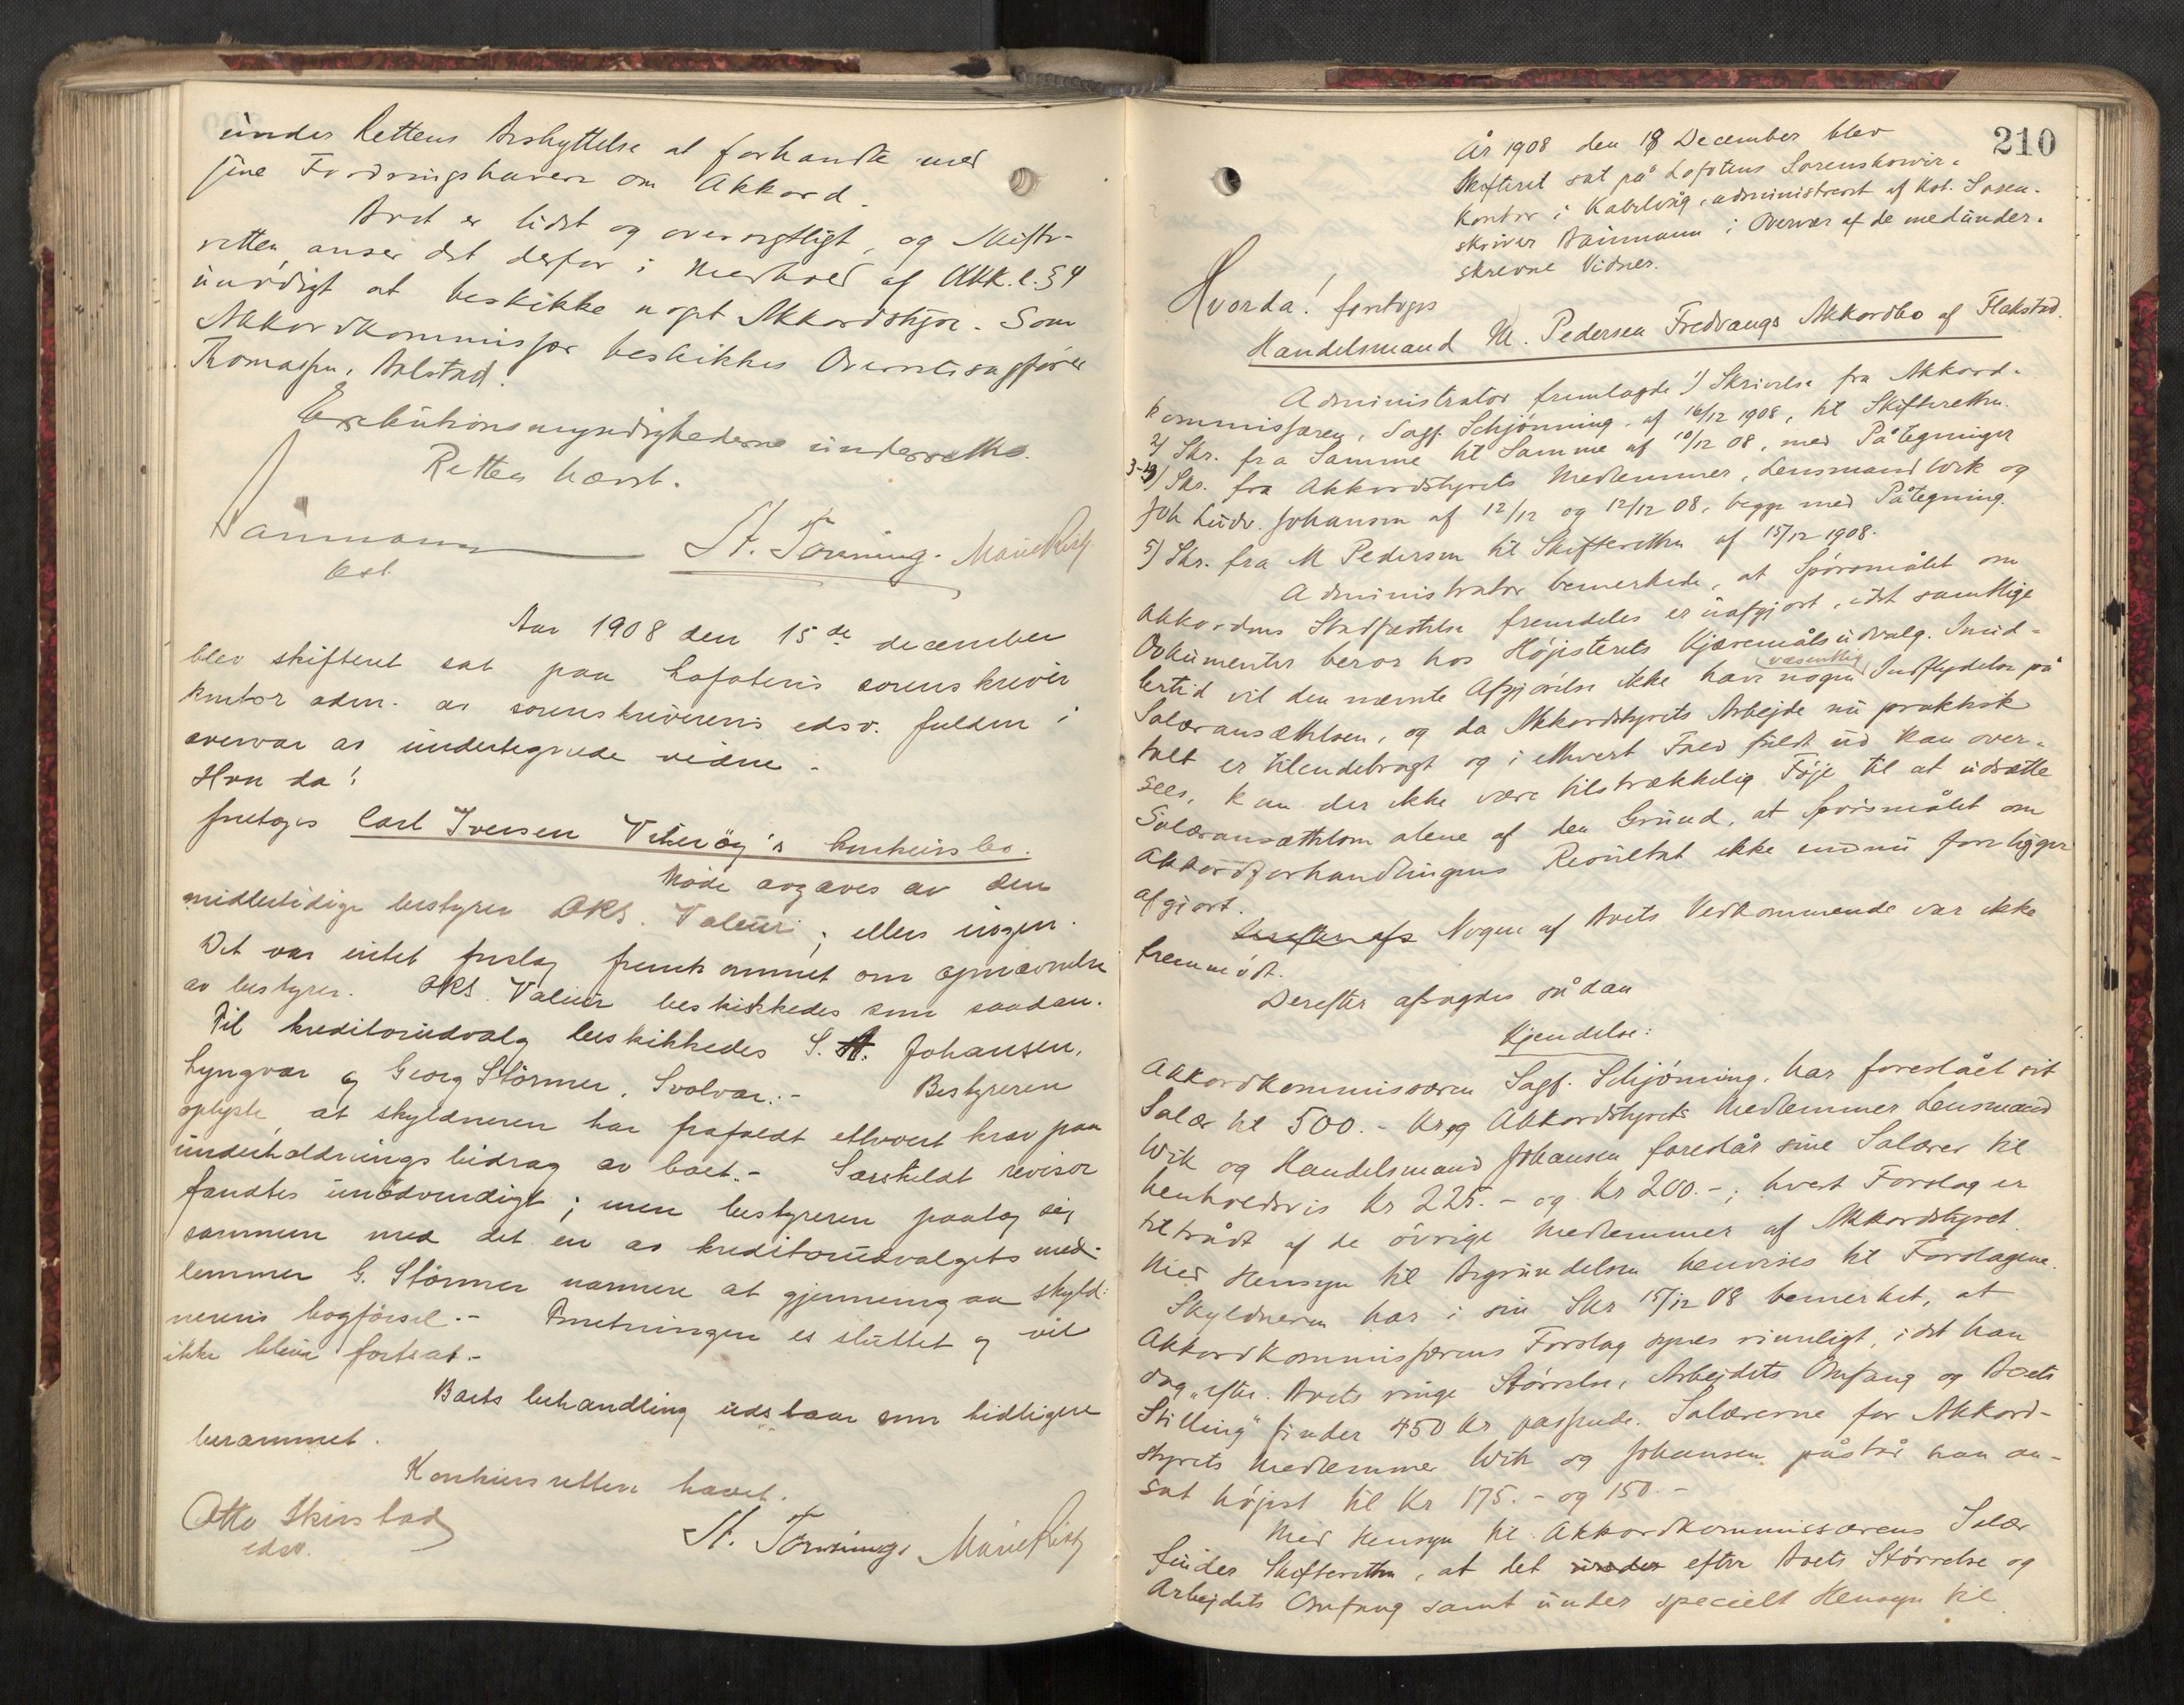 under Rettens Beskyttelse at forhandle med
sine Fordringshavere om Akkord.
Boet er lidet og oversigtligt, og Skifte-
retten anser det derfor i Medhold af Akk.l. § 4
unødigt at beskikke noget Akkordstyre. Som
Akkordkommissær beskikkes Overretssagfører
Thomassen, Bolstad.
Exekutionsmyndighederne underrettes.
Retten hævet.
Baumann
kst.
St. Tønning. Marie Rist
Aar 1908 den 15de december
blev skifteret sat paa Lofotens sorenskriver
kontor adm. av sorenskriverens edsv. fuldm i
overvær av undertegnede vidne -
Hvor da!
foretoges Carl Iversen Veterøy's konkursbo.
Møde avgaves av den
midlertidige bestyrer ORS. Valeur; ellers ingen.
Det var intet forslag fremkommet om opnævnelse
av bestyrer. ORS. Valeur beskikkedes som saadan.
Til kreditorudvalg beskikkedes S. A. Johansen,
Lyngvær og Georg Störmer, Svolvær. - Bestyreren
oplyste, at skyldneren har frafaldt ethvert krav paa
underholdningsbidrag av boet. - Særskildt revisor
fandtes unødvendigt; men bestyreren paatog sig
sammen med det en av kreditorudvalgets med-
lemmer G. Störmer nærmere at gjennemgaa skyld-
nerens bogførsel. - Forretningen er sluttet og vil
ikke blive fortsat. -
Boets behandling udstaar som tidligere
berammet.
Konkursretten hævet.
Otto Skirstad
edsv.
St. Tønning. Marie Rist
210
År 1908 den 18 December blev
Skifteret sat på Lofotens Sorenskriver-
kontor i Kabelvåg, administreret af Kst. Soren-
skriver Baumann i Overvær af de medunder-
skrevne Vidner.
Hvorda! foretoges
Handelsmand M. Pedersen Fredvangs Akkordbo af Flakstad.
Administrator fremlagde 1) Skrivelse fra Akkord-
kommissæren, Sagf. Schjönning, af 16/12 1908, til Skifteretten.
2) Skr. fra Samme til Samme af 10/12 08, med Påtegninger
3-4) Skr. fra Akkordstyrets Medlemmer, Lensmand Wik og
Joh Ludv. Johansen af 12/12 og 12/12 08, begge med Påtegning
5) Skr. fra M Pedersen til Skifteretten af 15/12 1908.
Administrator bemerkede, at Spörsmålet om
Akkordens Stadfæstelse fremdeles er uafgjort, idet samtlige
Dokumenter beror hos Höjesterets Kjæremålsudvalg. Imid-
lertid vil den nævnte Afgjörelse ikke have nogen væsentlig Indflydelse på
Salæransættelsen, og da Akkordstyrets Arbejde nu praktisk
talt er tilendebragt og i ethvert Fald fuldt ud kan over-
sees, kan der ikke være tilstrækkelig Föje til at udsætte
Salæransættelsen alene af den Grund, at Spörsmålet om
Akkordforhandlingens Resultat ikke endnu foreligger
afgjort.
Derefter afs Nogen af Boets Vedkommende var ikke
fremmödt.
Derefter afsagdes sådan
Kjendelse:
Akkordkommissæren Sagf. Schjönning, har foreslået sit
Salær til 500.- Kr, og Akkordstyrets Medlemmer Lensmand
Wik og Handelsmand Johansen foreslår sine Salærer til
henholdsvis Kr 225.- og Kr 200.-; hvert Forslag er
tiltrådt af de övrige Medlemmer af Akkordstyret.
Med Hensyn til Begrundelsen henvises til Forslagene.
Skyldneren har i sin Skr 15/12 08 bemerket, at
Akkordkommissærens Forslag synes rimeligt, idet han
dog "efter Boets ringe Störrelse, Arbejdets Omfang og Boets
Stilling" finder 450 Kr passende. Salærerne for Akkord-
styrets Medlemmer Wik og Johansen påstår han an-
sat höjest til Kr 175.- og 150.-
Med Hensyn til Akkordkommissærens Salær
finder Skifteretten, at det under efter Boets Störrelse og
Arbejdets Omfang samt under specielt Hensyn til